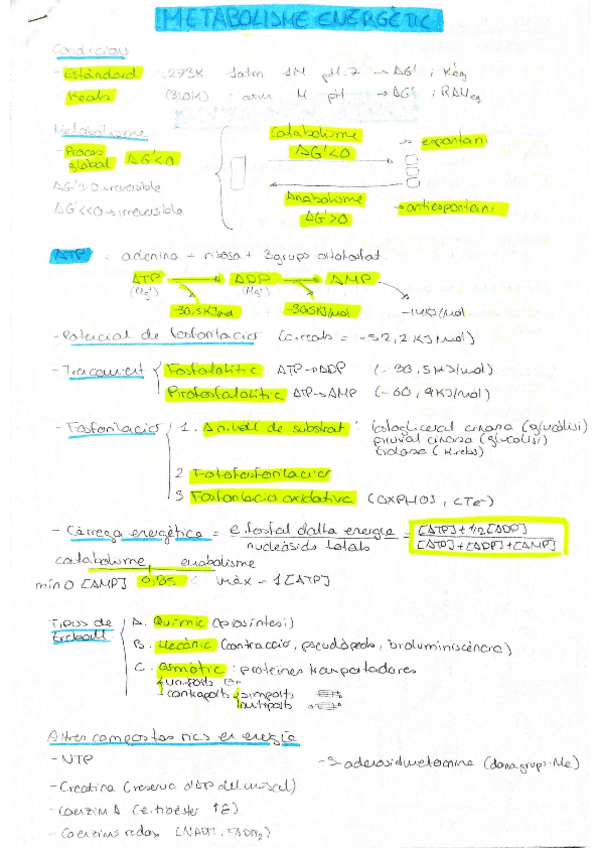 METABOLISME ENERGÈTIC
Condicions
- Estàndard : 273K 1atm 1M pH=7 → ΔG°' ; Keq
Reals (310K) atm M pH → ΔG' ; RAMeq
Metabolisme
Catabolisme → espontani
- Procés global ΔG'<0
ΔG'<0
ΔG'≈0 → reversible
Anabolisme → antiespontani
ΔG'<<0 → irreversible
ΔG>0
ATP = adenina + ribosa + 3 grups ortofosfat
ATP → ADP → AMP
(Mg²⁺) (Mg²⁺)
-30,5KJ/mol -30,5KJ/mol -14KJ/mol
- Potencial de fosforilació (c.reals = -52,2 KJ/mol)
- Trencament Fosfatolític ATP→ADP (-30,5KJ/mol)
Pirofosfatolític ATP→AMP (-60,9KJ/mol)
- Fosforilació 1. A nivell de substrat : fosfoglicerat cinasa (glucòlisi)
piruvat cinasa (glucòlisi)
(Krebs)
2 Fotofosforilació
3 Fosforilació oxidativa (OXPHOS, CTe⁻)
- Càrrega energètica = e. fosfat d'alta energia / nucleòsids totals = [ATP] + 1/2[ADP] / [ATP]+[ADP]+[AMP]
catabolisme anabolisme
mín 0 [AMP] 0,85 màx = 1 [ATP]
Tipus de treball A. Químic (biosíntesi)
B. Mecànic (contracció, pseudòpods, bioluminiscència)
C. Osmòtic : proteïnes transportadores
uniports
contraports simports
antiports
Altres compostos rics en energia
- NTP
- S-adenosilmetionina (dona grups -Me)
- Creatina (reserva d'ATP del múscul)
- Coenzim A (e. tioéster ↑E)
- Coenzims redox (NADH, FADH₂)